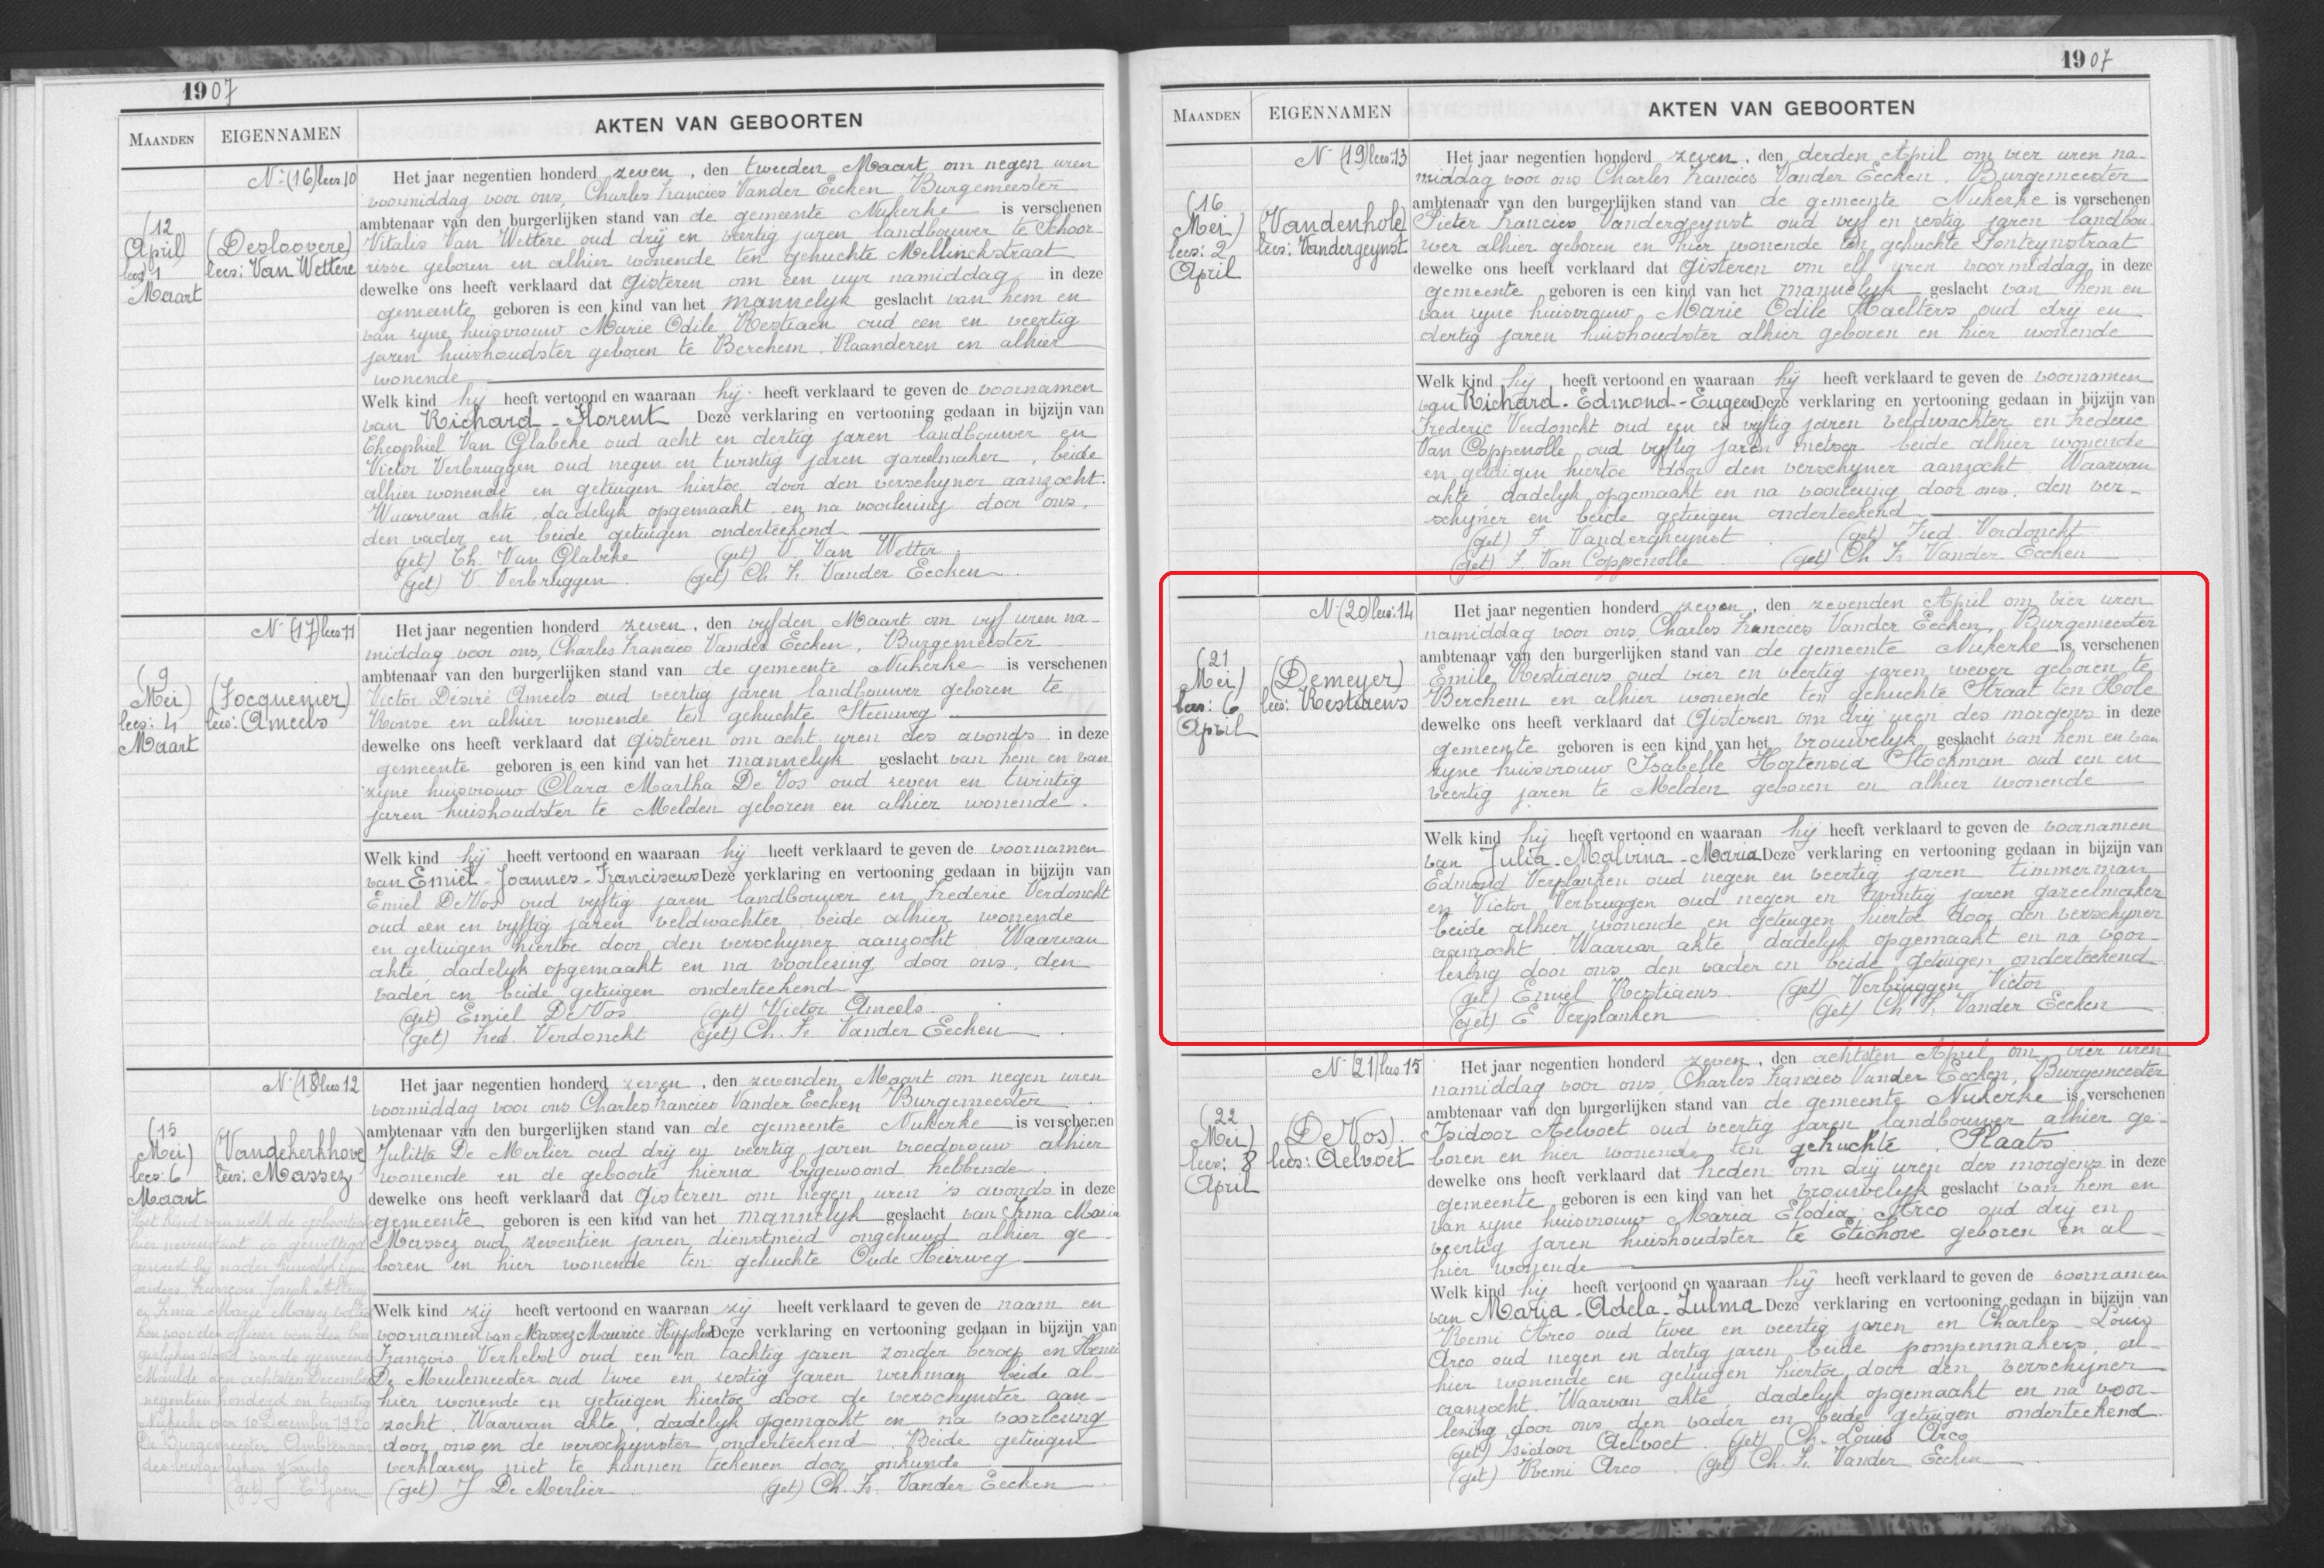 1907
MAANDEN EIGENNAMEN AKTEN VAN GEBOORTEN
N: (16) lees 10
(12
April)
lees 1
Maart
(Desloovere)
lees: Van Wettere
Het jaar negentien honderd zeven, den tweeden Maart om negen uren
voormiddag voor ons, Charles Francies Vander Eecken Burgemeester
ambtenaar van den burgerlijken stand van de gemeente Nukerke is verschenen
Vitalis Van Wettere oud drij en veertig jaren landbouwer te Schoor-
risse geboren en alhier wonende ten gehuchte Mellinckstraat
dewelke ons heeft verklaard dat Gisteren om een uur namiddag in deze
gemeente geboren is een kind van het mannelyk geslacht van hem en
van zyne huisvrouw Marie Odile Restiaen oud een en veertig
jaren huishoudster geboren te Berchem. Vlaanderen en alhier
wonende
Welk kind hij heeft vertoond en waaraan hij heeft verklaard te geven de voornamen
van Richard - Florent Deze verklaring en vertooning gedaan in bijzijn van
Theophiel Van Glabeke oud acht en dertig jaren landbouwer en
Victor Verbruggen oud negen en twintig jaren gareelmaker, beide
alhier wonende en getuigen hiertoe door den verschyner aanzocht.
Waarvan akte, dadelyk opgemaakt, en na voorlezing door ons,
den vader en beide getuigen onderteekend
(get) Th. Van Glabeke (get) V. Van Wetter
(get) V. Verbruggen. (get) Ch. Fr. Vander Eecken
N: (17) lees 11
(9
Mei)
lees: 4
Maart
(Focquenier)
lees: Ameels
Het jaar negentien honderd zeven, den vyfden Maart om vyf uren na-
middag voor ons, Charles Francies Vander Eecken, Burgemeester
ambtenaar van den burgerlijken stand van de gemeente Nukerke is verschenen
Victor Désiré Ameels oud veertig jaren landbouwer geboren te
Ronse en alhier wonende ten gehuchte Steenweg
dewelke ons heeft verklaard dat Gisteren om acht uren des avonds in deze
gemeente geboren is een kind van het mannelyk geslacht van hem en van
zyne huisvrouw Clara Martha De Vos oud zeven en twintig
jaren huishoudster te Melden geboren en alhier wonende.
Welk kind hij heeft vertoond en waaraan hij heeft verklaard te geven de voornamen
van Emiel - Joannes - Franciscus Deze verklaring en vertooning gedaan in bijzijn van
Emiel De Vos oud vyftig jaren landbouwer en Frederic Verdonckt
oud een en vyftig jaren veldwachter beide alhier wonende
en getuigen hiertoe door den verschyner aanzocht. Waarvan
akte dadelyk opgemaakt en na voorlezing door ons, den
vader en beide getuigen onderteekend
(get) Emiel De Vos (get) Victor Ameels
(get) Fred. Verdonckt (get) Ch. Fr. Vander Eecken
N: (18) lees 12
(15
Mei)
lees: 6
Maart
(Vandekerkhove)
lees: Massez
Het jaar negentien honderd zeven, den zevenden Maart om negen uren
voormiddag voor ons Charles Francies Vander Eecken Burgemeester
ambtenaar van den burgerlijken stand van de gemeente Nukerke is verschenen
Julitte De Merlier oud drij en veertig jaren vroedvrouw alhier
wonende en de geboorte hierna bygewoond hebbende.
dewelke ons heeft verklaard dat Gisteren om negen uren 's avonds in deze
gemeente geboren is een kind van het mannelyk geslacht van Irma Maria
Massez oud zeventien jaren dienstmeid ongehuwd alhier ge-
boren en hier wonende ten gehuchte Oude Heirweg
Welk kind zij heeft vertoond en waaraan zij heeft verklaard te geven de naam en
voornamen van Massez Maurice Hippoliet Deze verklaring en vertooning gedaan in bijzijn van
François Verhelst oud een en tachtig jaren zonder beroep en Henri
De Meulemeester oud twee en zestig jaren werkman beide al-
hier wonende en getuigen hiertoe door de verschynster aan-
zocht. Waarvan akte, dadelyk opgemaakt en na voorlezing
door ons en de verschynster onderteekend. Beide getuigen
verklaren niet te kunnen teekenen door onkunde
(get) J De Merlier (get) Ch. Fr. Vander Eecken
Het kind van welk de geboorteakte
hier nevenstaat is gewettigd
geweest by nader huwelyk zyne
ouders François Joseph
en Irma Marie Massez voltrok-
ken voor den officier van den bur-
gerlyken stand van de gemeente
Maulde den achtsten December
negentien honderd en twintig
Nukerke den 10 December 1920
De Burgemeester, Ambtenaar
des burgerlyken stands
1907
MAANDEN EIGENNAMEN AKTEN VAN GEBOORTEN
N: (19) lees: 13
(16
Mei)
lees: 2
April
(Vandenhole)
lees: Vandergeynst
Het jaar negentien honderd zeven, den derden April om vier uren na-
middag voor ons Charles Francies Vander Eecken. Burgemeester
ambtenaar van den burgerlijken stand van de gemeente Nukerke is verschenen
Pieter Francies Vandergeynst oud vyf en zestig jaren landbou-
wer alhier geboren en hier wonende ten gehuchte Fonteynstraat
dewelke ons heeft verklaard dat Gisteren om elf uren voormiddag in deze
gemeente geboren is een kind van het mannelyk geslacht van hem en
van zyne huisvrouw Marie Odile Haelters oud drij en
dertig jaren huishoudster alhier geboren en hier wonende
Welk kind hij heeft vertoond en waaraan hij heeft verklaard te geven de voornamen
van Richard - Edmond - Eugeen Deze verklaring en vertooning gedaan in bijzijn van
Frederic Verdonckt oud een en vyftig jaren veldwachter en Frederic
Van Coppenolle oud vyftig jaren metser beide alhier wonende
en getuigen hiertoe door den verschyner aanzocht. Waarvan
akte dadelyk opgemaakt en na voorlezing door ons, den ver-
schyner en beide getuigen onderteekend
(get) F. Vandergheynst (get) Fred. Verdonckt
(get) F. Van Coppenolle (get) Ch Fr. Vander Eecken
N: (20) lees: 14
(21
Mei)
lees: 6
April
(Demeyer)
lees: Restiaens
Het jaar negentien honderd zeven, den zevenden April om vier uren
namiddag voor ons, Charles Francies Vander Eecken, Burgemeester
ambtenaar van den burgerlijken stand van de gemeente Nukerke is verschenen
Emile Restiaens oud vier en veertig jaren wever geboren te
Berchem en alhier wonende ten gehuchte Straat ten Hole
dewelke ons heeft verklaard dat Gisteren om drij uren des morgens in deze
gemeente geboren is een kind van het vrouwelyk geslacht van hem en van
zyne huisvrouw Isabelle Hortensia Stockman oud een en
veertig jaren te Melden geboren en alhier wonende
Welk kind hij heeft vertoond en waaraan hij heeft verklaard te geven de voornamen
van Julia - Malvina - Maria Deze verklaring en vertooning gedaan in bijzijn van
Edmond Verplanken oud negen en veertig jaren timmerman
en Victor Verbruggen oud negen en twintig jaren gareelmaker
beide alhier wonende en getuigen hiertoe door den verschyner
aanzocht. Waarvan akte dadelyk opgemaakt en na voor-
lezing door ons den vader en beide getuigen onderteekend
(get) Emiel Restiaens. (get) Verbruggen Victor
(get) E Verplanken (get) Ch. F. Vander Eecken
N: 21) lees 15
(22
Mei)
lees: 8
April
(De Vos)
lees: Aelvoet
Het jaar negentien honderd zeven, den achtsten April om vier uren
namiddag voor ons, Charles Francies Vander Eecken, Burgemeester
ambtenaar van den burgerlijken stand van de gemeente Nukerke is verschenen
Isidoor Aelvoet oud veertig jaren landbouwer alhier ge-
boren en hier wonende ten gehuchte. Plaats
dewelke ons heeft verklaard dat heden om drij uren des morgens in deze
gemeente geboren is een kind van het vrouwelyk geslacht van hem en
van zyne huisvrouw Maria Elodia Arco oud drij en
veertig jaren huishoudster te Etichove geboren en al-
hier wonende
Welk kind hij heeft vertoond en waaraan hij heeft verklaard te geven de voornamen
van Maria - Adela - Zulma Deze verklaring en vertooning gedaan in bijzijn van
Remi Arco oud twee en veertig jaren en Charles - Louis
Arco oud negen en dertig jaren beide pompenmakers, al-
hier wonende en getuigen hiertoe door den verschyner
aanzocht. Waarvan akte, dadelyk opgemaakt en na voor-
lezing door ons den vader en beide getuigen onderteekend.
(get) Isidoor Aelvoet. (get) Ch. Louis Arco
(get) Remi Arco. (get) Ch. Fr. Vander Eecken